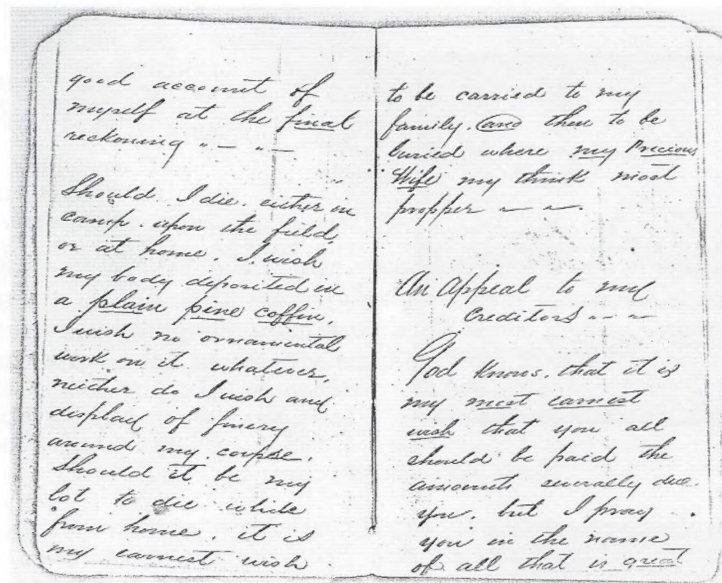 good account of
myself at the final
reckoning " — " —
Should I die, either in
camp, upon the field,
or at home, I wish
my body deposited in
a plain pine coffin,
I wish no ornamental
work on it whatever,
neither do I wish any
display of finery
around my corpse.
Should it be my
lot to die while
from home, it is
my earnest wish
to be carried to my
family, and then to be
buried where my Precious
Wife my think most
propper — —.
An Appeal to my
Creditors — —
God knows, that it is
my most earnest
wish that you all
should be paid the
amounts severally due
you, but I pray
you in the name
of all that is great